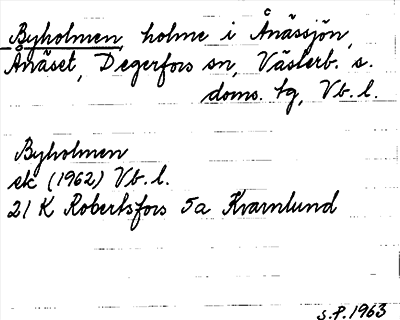 Byholmen, holme i Ånässjön,
Ånäset, Degerfors sn, Västerb. s.
doms. tg, Vb. l.
Byholmen
ek (1962) Vb. l.
21 K Robertsfors 5a Kvarnlund
S.P. 1963